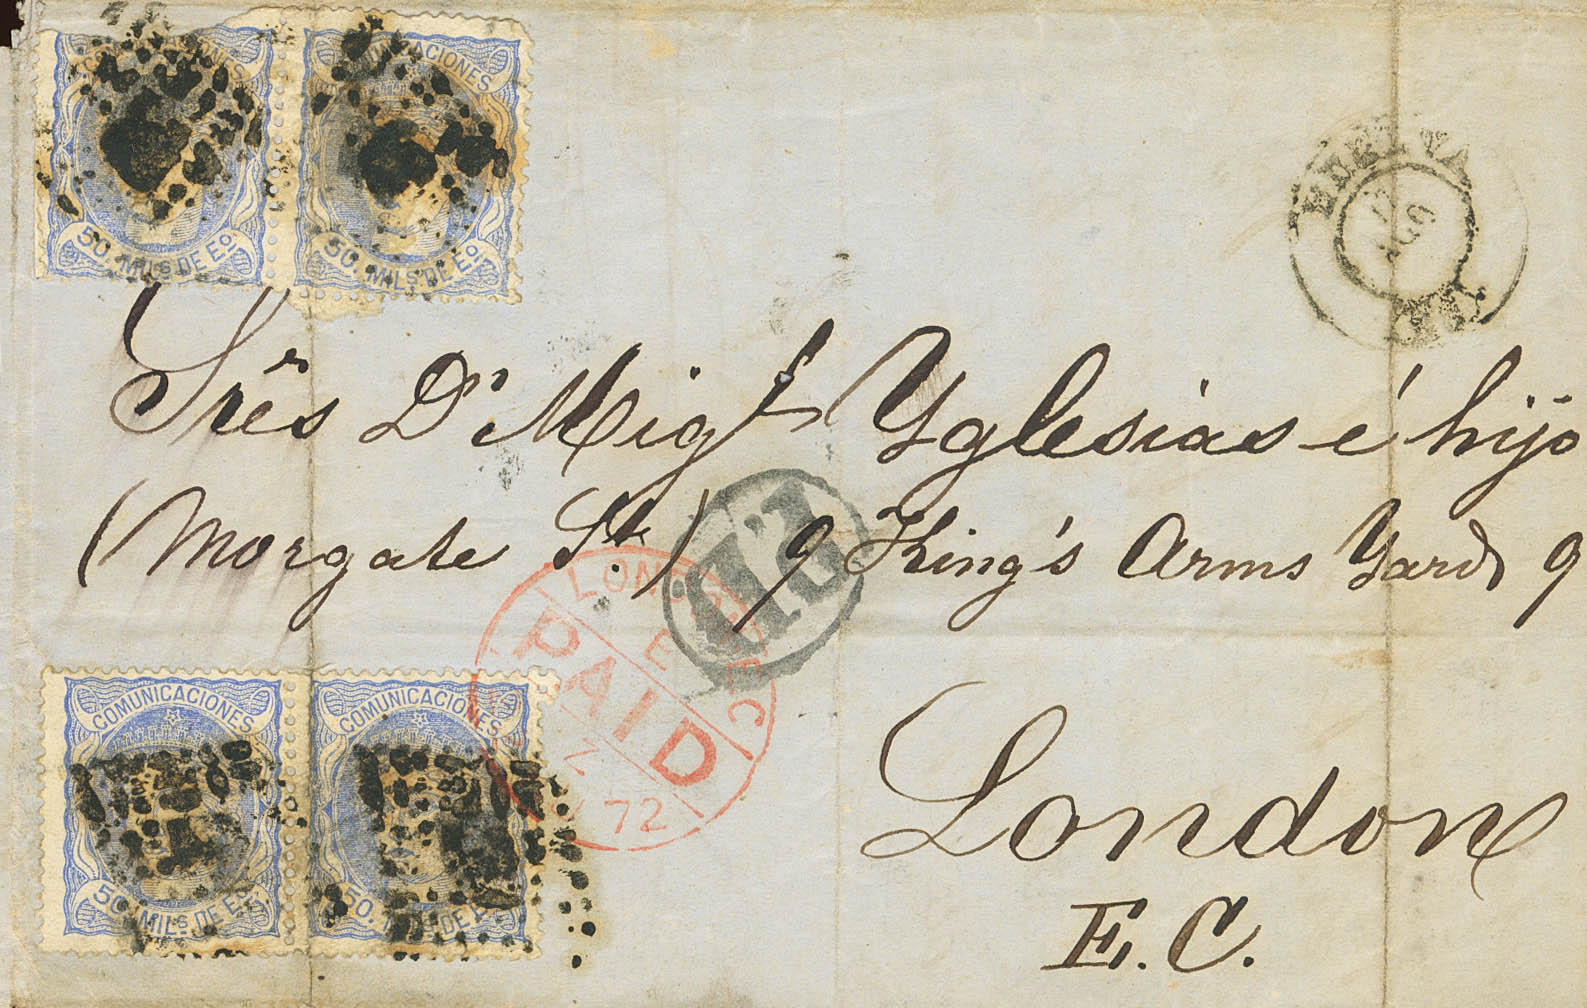 COMUNICACIONES
50. MILS. DE Eº
COMUNICACIONES
50. MILS. DE Eº
HUELVA
AGO
Sres Dn Migl Yglesias é hijo
(Morgate St.) 9 King's Arms Yard 9
PD
LONDON
EC
PAID
72
COMUNICACIONES
50. MILS. DE Eº
COMUNICACIONES
50. MILS. DE Eº
London
E.C.